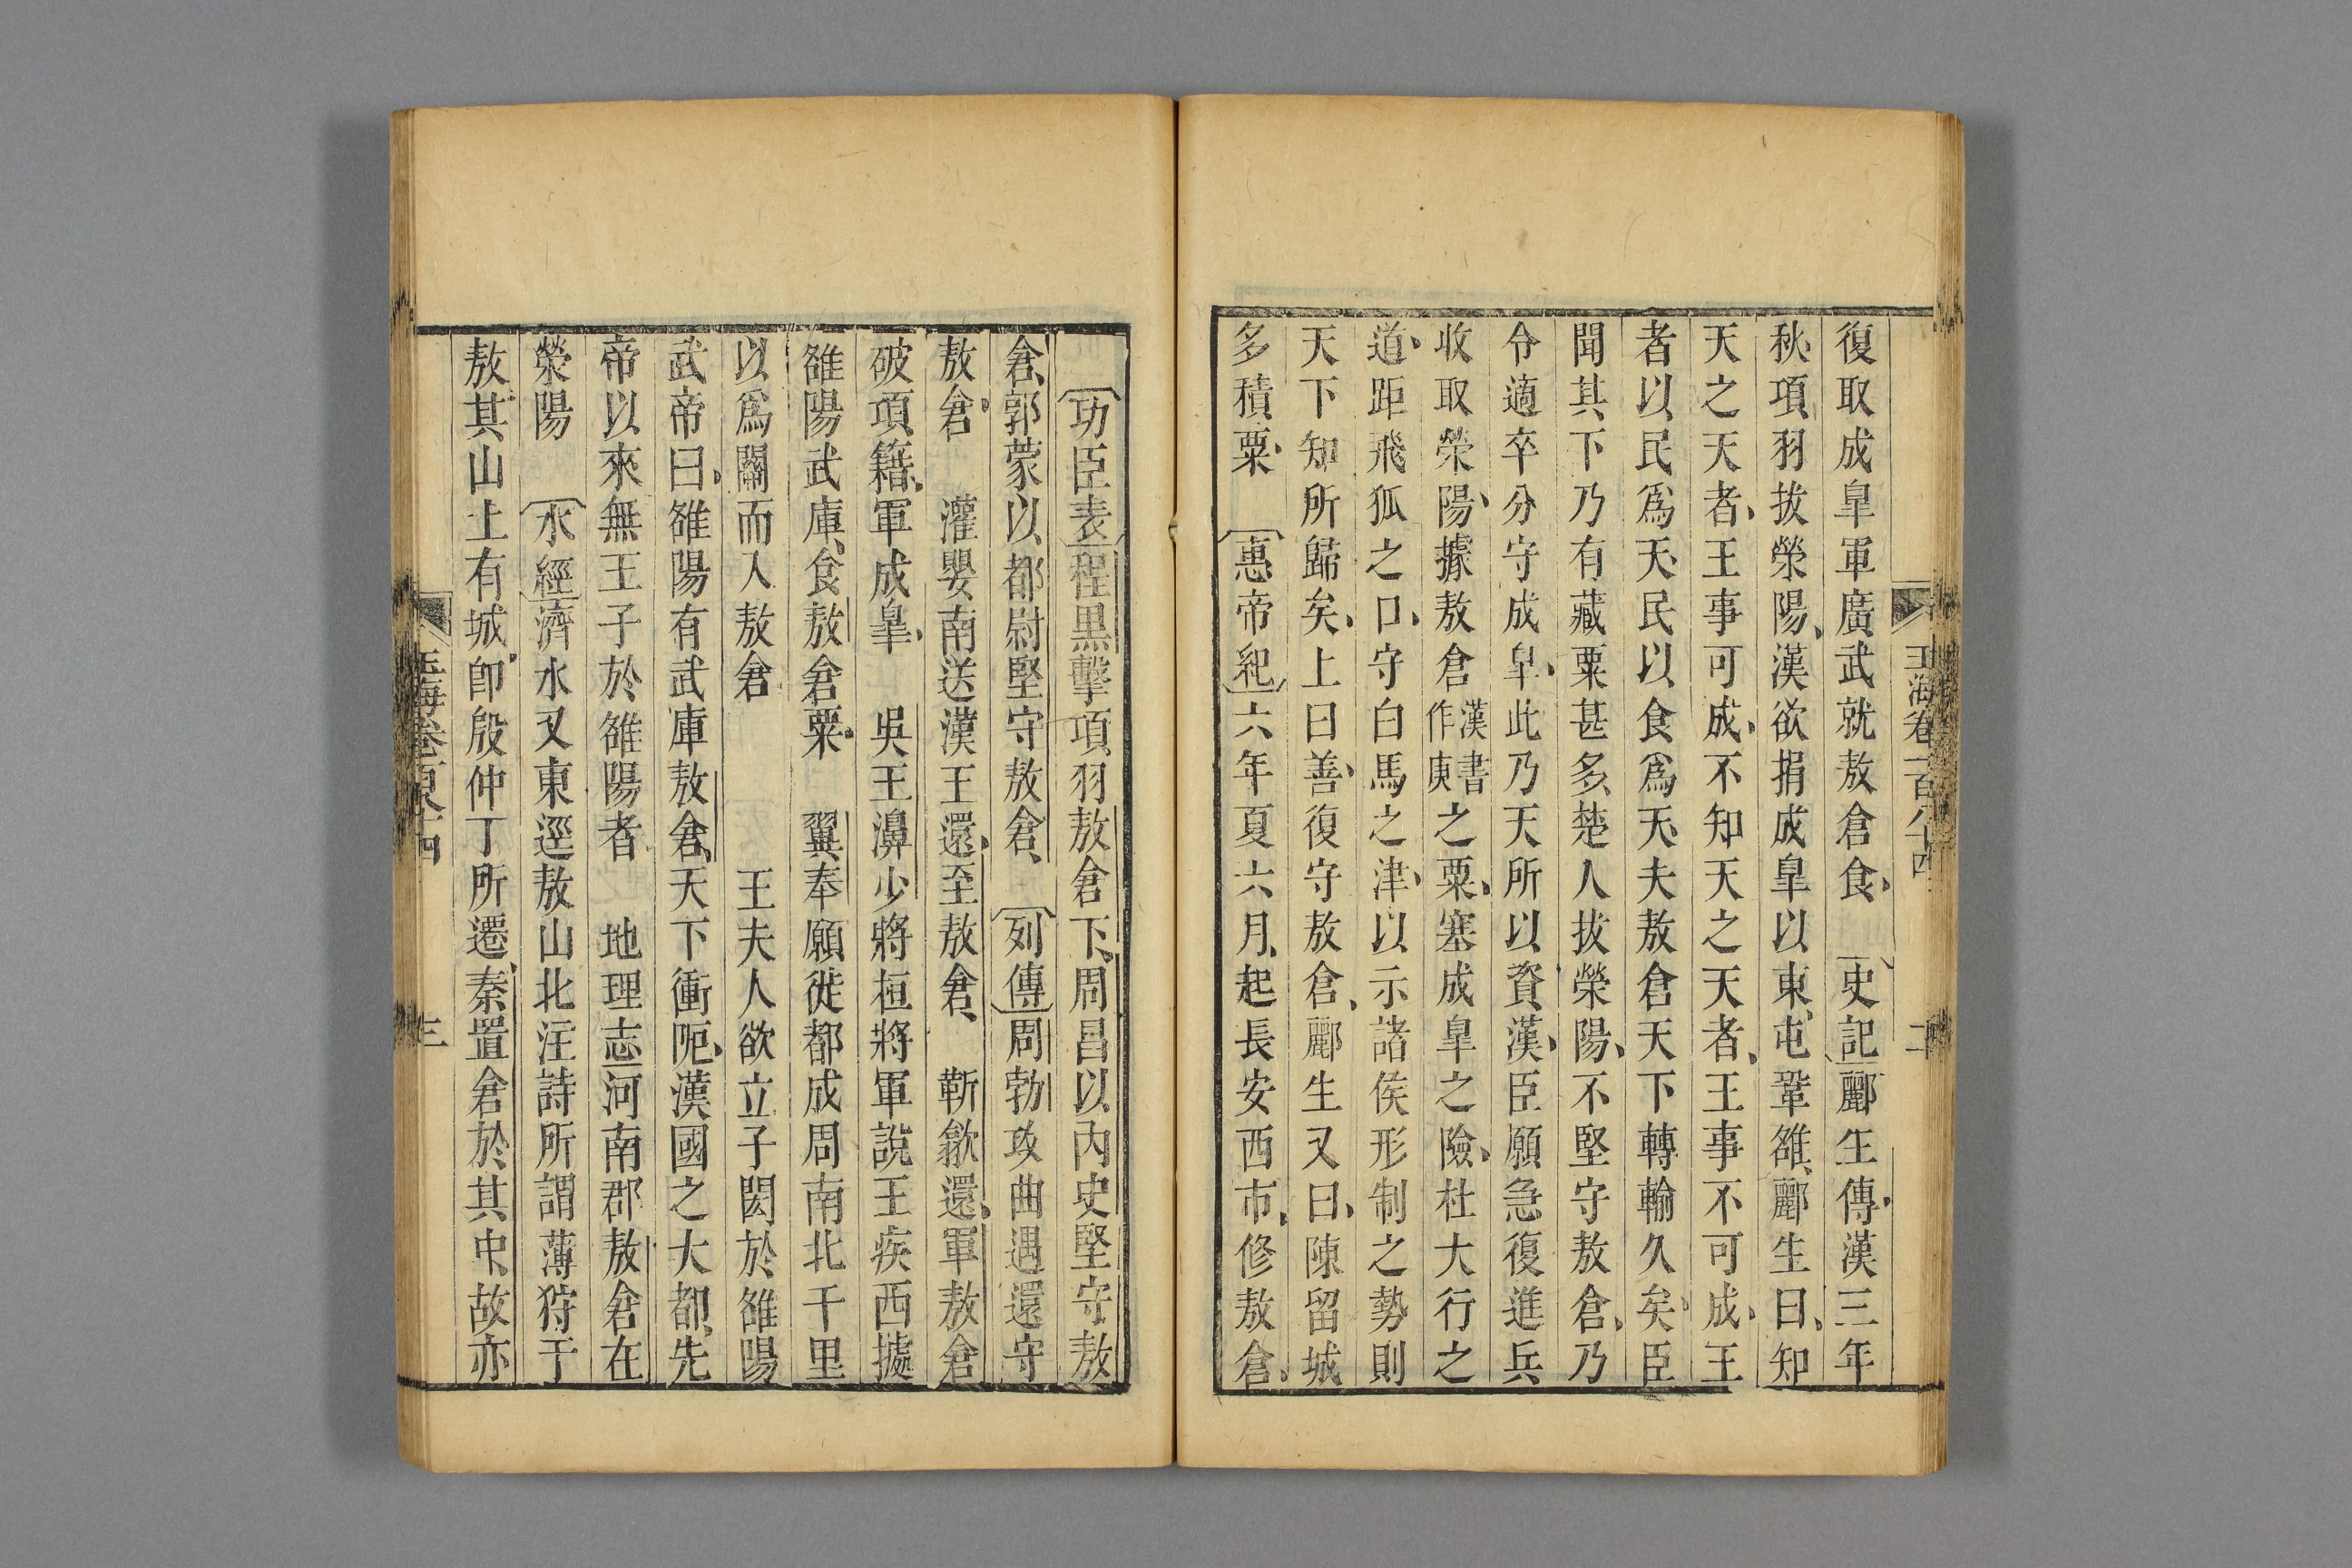 玉海卷一百八十四
二
復取成皐軍廣武就敖倉食 史記酈生傳漢三年
秋項羽拔滎陽漢欲捐成皐以東屯鞏雒酈生曰知
天之天者王事可成不知天之天者王事不可成王
者以民爲天民以食爲天夫敖倉天下轉輸久矣臣
聞其下乃有藏粟甚多楚人拔滎陽不堅守敖倉乃
令適卒分守成皐此乃天所以資漢臣願急復進兵
收取滎陽據敖倉漢書作庾之粟塞成皐之險杜大行之
道距飛狐之口守白馬之津以示諸侯形制之勢則
天下知所歸矣上曰善復守敖倉酈生又曰陳留城
多積粟 惠帝紀六年夏六月起長安西市修敖倉
功臣表程黑擊項羽敖倉下周昌以內史堅守敖
倉郭蒙以都尉堅守敖倉 列傳周勃攻曲遇還守
敖倉 灌嬰南送漢王還至敖倉 靳歙還軍敖倉
破項籍軍成皐 吳王濞少將桓將軍說王疾西據
雒陽武庫食敖倉粟 翼奉願徙都成周南北千里
以爲關而入敖倉 王夫人欲立子閎於雒陽
武帝曰雒陽有武庫敖倉天下衝阨漢國之大都先
帝以來無王子於雒陽者 地理志河南郡敖倉在
滎陽 水經濟水又東逕敖山北注詩所謂薄狩于
敖其山上有城卽殷仲丁所遷秦置倉於其中故亦
玉海卷一百八十四
三